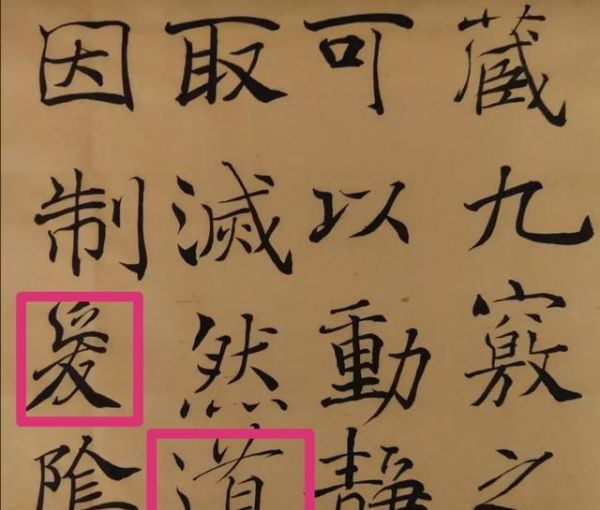 藏九竅之
可以動靜
取滅然道
因制爰陰